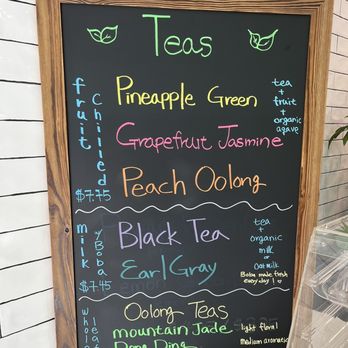 Teas
fruit
Chilled
$7.75
Pineapple Green
Grapefruit Jasmine
Peach Oolong
tea
+
fruit
+
organic
agave
milk
y Boba
$7.45
Black Tea
Earl Gray
tea
+
organic
milk
or
oatmilk
Boba made fresh
everyday!
Oolong Teas
mountain Jade
Dong Ding
light floral
Medium aromatic
whole
leaf